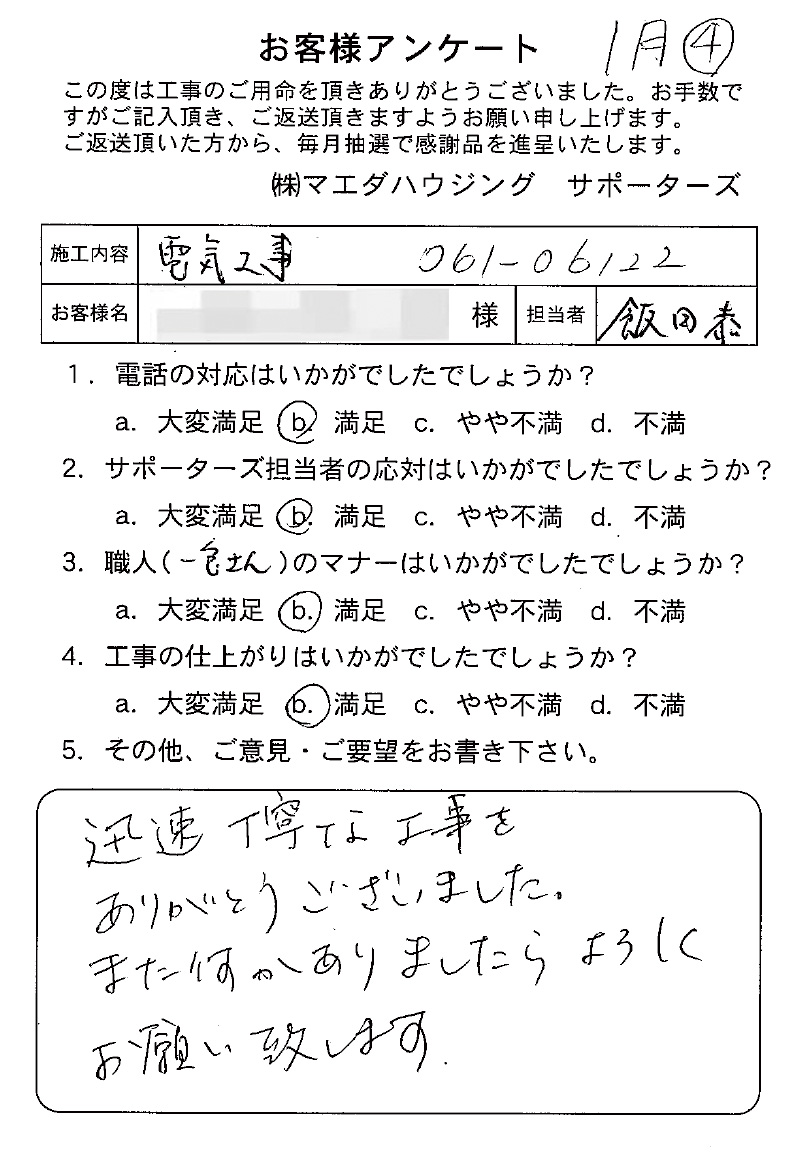 お客様アンケート 1月④
この度は工事のご用命を頂きありがとうございました。お手数で
すがご記入頂き、ご返送頂きますようお願い申し上げます。
ご返送頂いた方から、毎月抽選で感謝品を進呈いたします。
㈱マエダハウジング サポーターズ
施工内容 電気工事 061-06122
お客様名 様 担当者 飯田泰
1. 電話の対応はいかがでしたでしょうか?
a. 大変満足 b. 満足 c. やや不満 d. 不満
2. サポーターズ担当者の応対はいかがでしたでしょうか?
a. 大変満足 b. 満足 c. やや不満 d. 不満
3. 職人(一倉さん)のマナーはいかがでしたでしょうか?
a. 大変満足 b. 満足 c. やや不満 d. 不満
4. 工事の仕上がりはいかがでしたでしょうか?
a. 大変満足 b. 満足 c. やや不満 d. 不満
5. その他、ご意見・ご要望をお書き下さい。
迅速丁寧な工事を
ありがとうございました。
また何かありましたらよろしく
お願い致します.